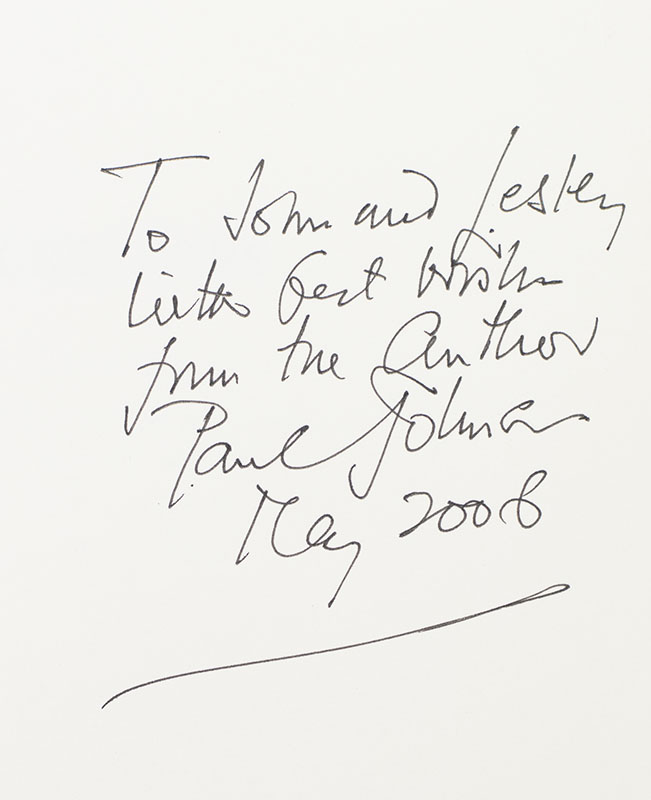 To John and Lesley
with best wishes
from the author
Paul Johnson
May 2008